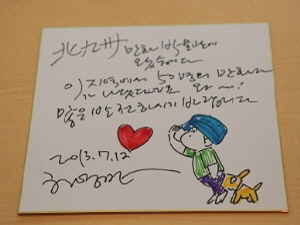 北九州 만화 박물관에
왔습니다
이 지역에서 50명의 만화가
가 나왔다니 와~!
많은 발전하시기 바랍니다
2013.7.12